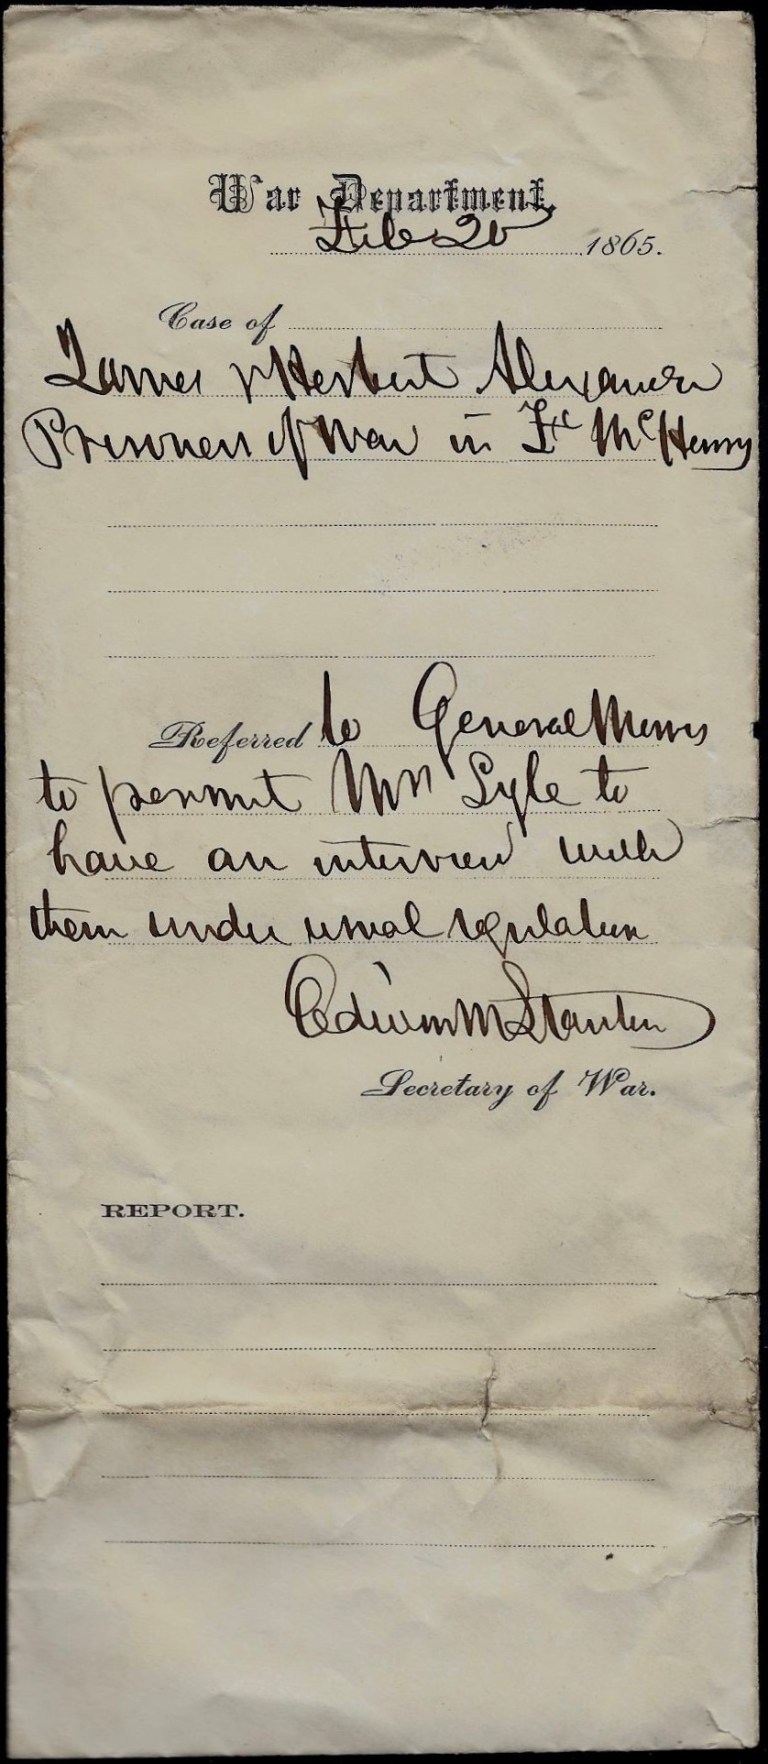 War Department,
Feb 20 1865.
Case of
James & Herbert Alexander
Prisoners of War in Ft McHenry
Referred to General Morris
to permit Mrs Lyle to
have an interview with
them under usual regulation
Edwin M Stanton
Secretary of War.
REPORT.